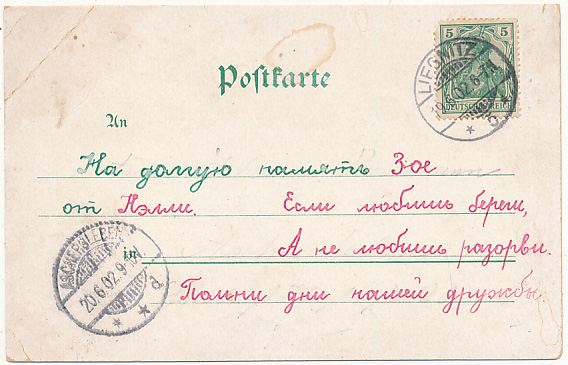 5 5
DEUTSCHES REICH
LIEGNITZ
6.02.6-7N
c
Postkarte
An
На долгую память Зое
от Нэлли. Если любишь береги,
in А не любишь разорви.
Помни дни нашей дружбы.
ASCHERSLEBEN
20.6.02.9-
d